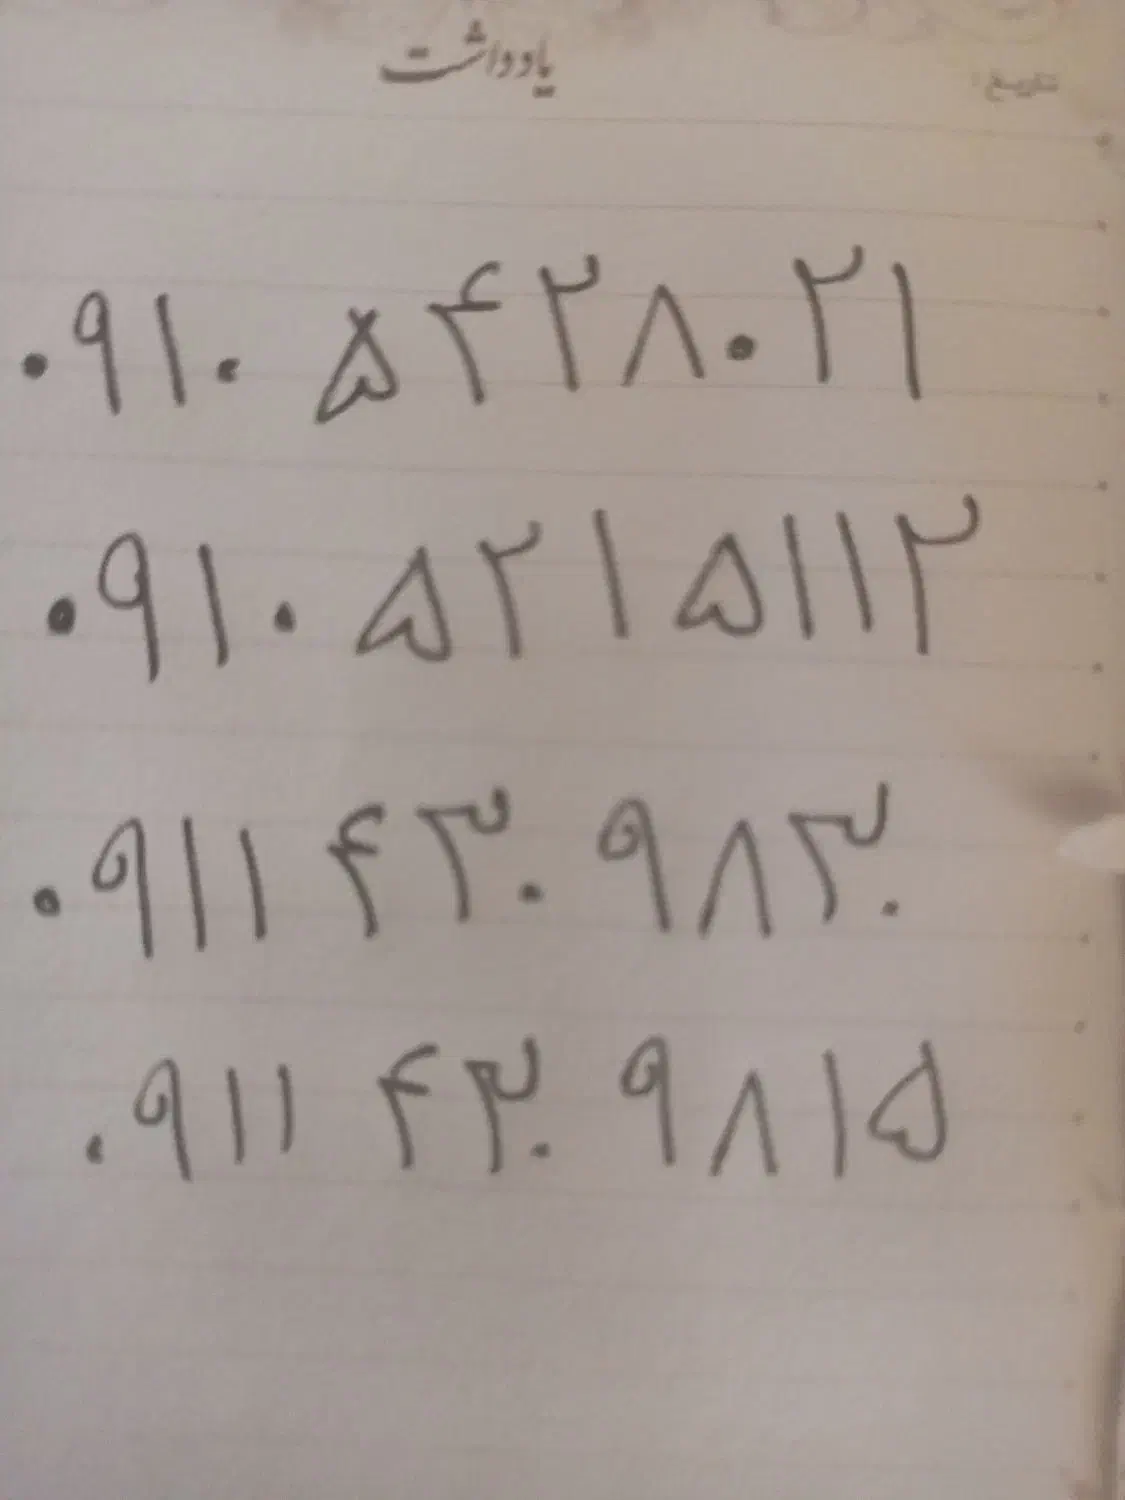 یادداشت
تاریخ:
۰۹۱۰ ۵۴۲۸۰۲۱
۰۹۱۰ ۵۲۱ ۵۱۱۲
۰۹۱۱ ۴۳۰ ۹۸۳۰
۰۹۱۱ ۴۳۰ ۹۸۱۵